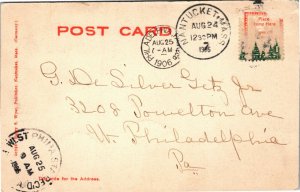 POST CARD
NANTUCKET, MASS.
AUG 24
12:30 PM
1906
PHILADELPHIA
AUG 25
7 - AM
1906
Place
Here
G. De Silver Getz Jr
3208 Powelton Ave
W. Philadelphia
Pa
WEST PHILA
AUG 25
9 AM
1906
REC'D
for the Address.